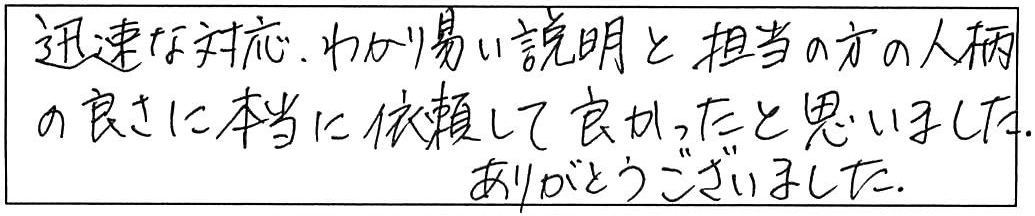 迅速な対応.わかり易い説明と担当の方の人柄
の良さに本当に依頼して良かったと思いました.
ありがとうございました.